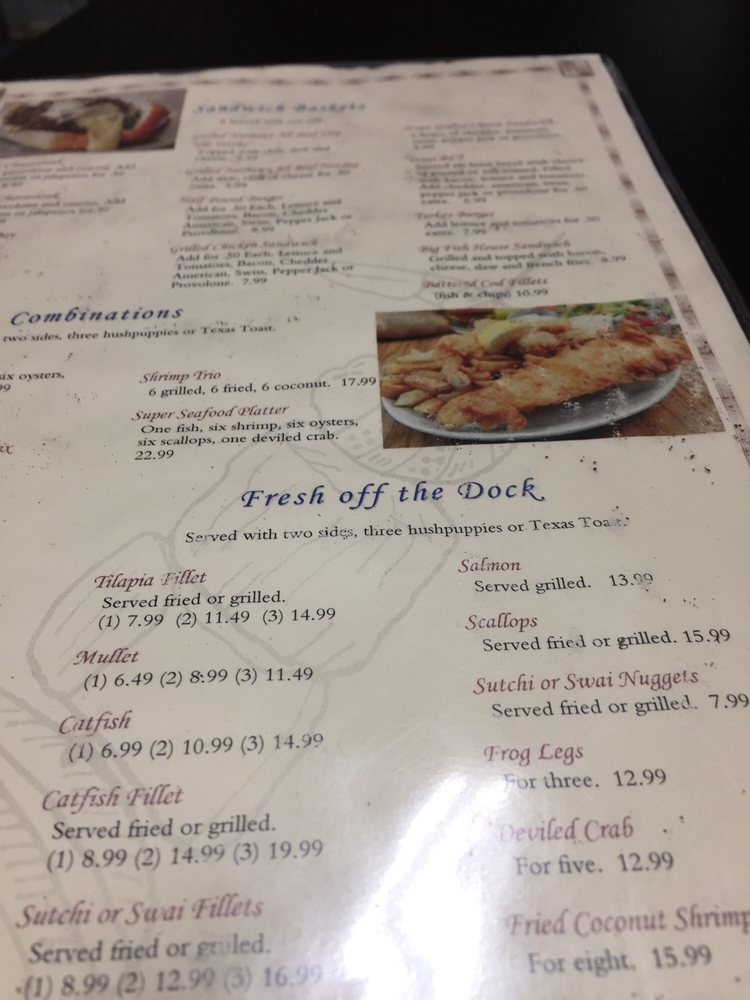 Sandwich Baskets
Half Pound Burger
Add for .50 Each. Lettuce and
Tomatoes, Bacon, Cheddar
American, Swiss, Pepper Jack or
Provolone. 8.99
Grilled Chicken Sandwich
Add for .50 Each. Lettuce and
Tomatoes, Bacon, Chedder
American, Swiss, Pepper Jack or
Provolone. 7.99
Turkey Burger
Add lettuce and tomatoes for .50
extra. 7.99
Big Fish House Sandwich
Grilled and topped with bacon,
cheese, slaw and french fries. 8.99
Battered Cod Fillets
(fish & chips) 10.99
Combinations
two sides, three hushpuppies or Texas Toast.
six oysters,
Shrimp Trio
6 grilled, 6 fried, 6 coconut. 17.99
Super Seafood Platter
One fish, six shrimp, six oysters,
six scallops, one deviled crab.
22.99
Fresh off the Dock
Served with two sides, three hushpuppies or Texas Toast.
Tilapia Fillet
Served fried or grilled.
(1) 7.99 (2) 11.49 (3) 14.99
Mullet
(1) 6.49 (2) 8.99 (3) 11.49
Catfish
(1) 6.99 (2) 10.99 (3) 14.99
Catfish Fillet
Served fried or grilled.
(1) 8.99 (2) 14.99 (3) 19.99
Sutchi or Swai Fillets
Served fried or grilled.
(1) 8.99 (2) 12.99 (3) 16.99
Salmon
Served grilled. 13.99
Scallops
Served fried or grilled. 15.99
Sutchi or Swai Nuggets
Served fried or grilled. 7.99
Frog Legs
For three. 12.99
Deviled Crab
For five. 12.99
Fried Coconut Shrimp
For eight. 15.99